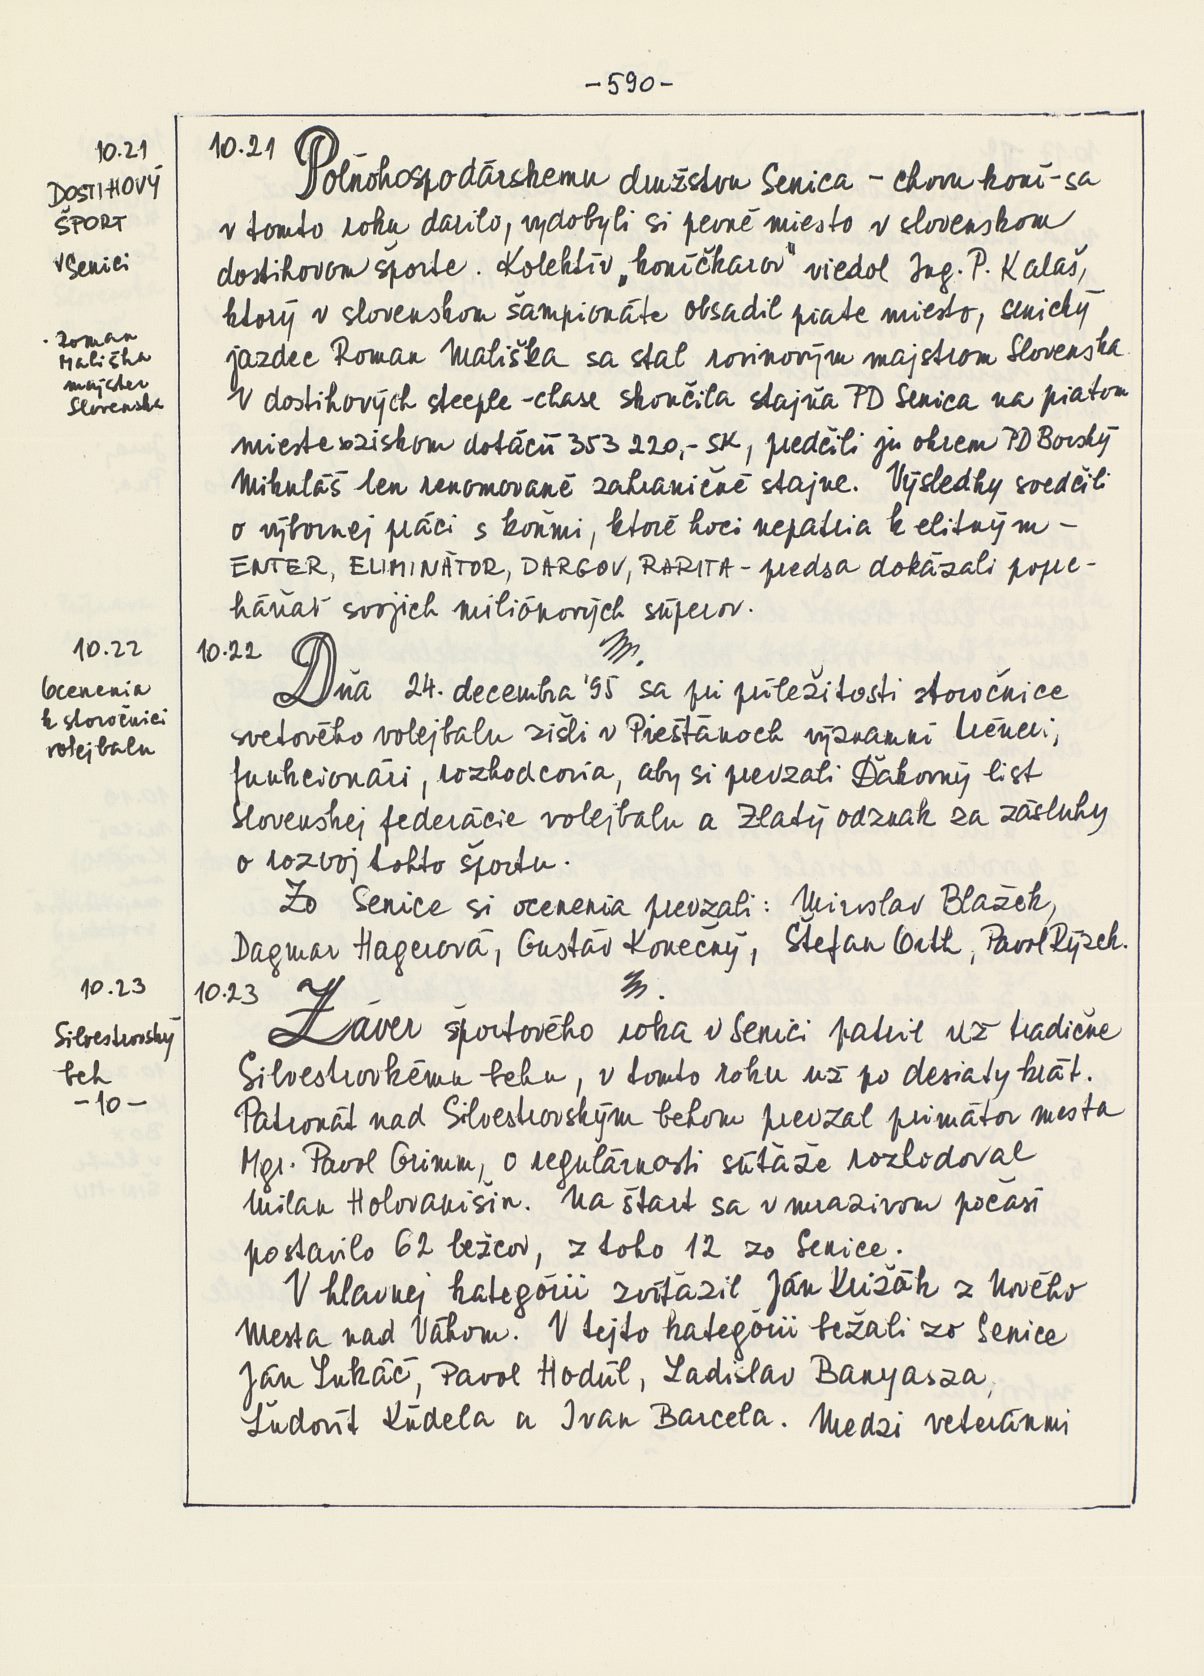 -590-
10.21
DOSTIHOVÝ
ŠPORT
v Senici
· Roman
Mališka
majster
Slovenska
10.21 Polňohospodárskemu družstvu Senica - chovu koní - sa
v tomto roku darilo, vydobyli si pevné miesto v slovenskom
dostihovom športe. Kolektív „koníčkarov" viedol Ing. P. Kalaš,
ktorý v slovenskom šampionáte obsadil piate miesto, senický
jazdec Roman Mališka sa stal rovinovým majstrom Slovenska
V dostihových steeple-chase skončila stajňa PD Senica na piatom
mieste so ziskom dotácií 353 220,- SK, predčili ju okrem PD Borský
Mikuláš len renomované zahraničné stajne. Výsledky svedčili
o výbornej práci s koňmi, ktoré hoci nepatria k elitným -
ENTER, ELIMINÁTOR, DARGOV, RARITA - predsa dokázali popre-
háňať svojich miliónových súperov.
10.22
Ocenenia
k storočnici
volejbalu
10.22 Dňa 24. decembra '95 sa pri príležitosti storočnice
svetového volejbalu zišli v Piešťanoch významní tréneri,
funkcionári, rozhodcovia, aby si prevzali Ďakovný list
Slovenskej federácie volejbalu a Zlatý odznak za zásluhy
o rozvoj tohto športu.
Zo Senice si ocenenia prevzali: Miroslav Blažek,
Dagmar Hagerová, Gustáv Konečný, Štefan Orth, Pavol Rýzek.
10.23
Silvestrovský
beh
-10-
10.23 Záver športového roka v Senici patril už tradične
Silvestrovkému behu, v tomto roku už po desiaty krát.
Patronát nad Silvestrovským behom prevzal primátor mesta
Mgr. Pavol Grimm, o regulárnosti súťaže rozhodoval
Milan Holovanišin. Na štart sa v mrazivom počasí
postavilo 62 bežcov, z toho 12 zo Senice.
V hlavnej kategórii zvíťazil Ján Križák z Nového
Mesta nad Váhom. V tejto kategórii bežali zo Senice
Ján Lukáč, Pavol Hodúl, Ladislav Banyasza,
Ľudovít Kúdela a Ivan Barcela. Medzi veteránmi